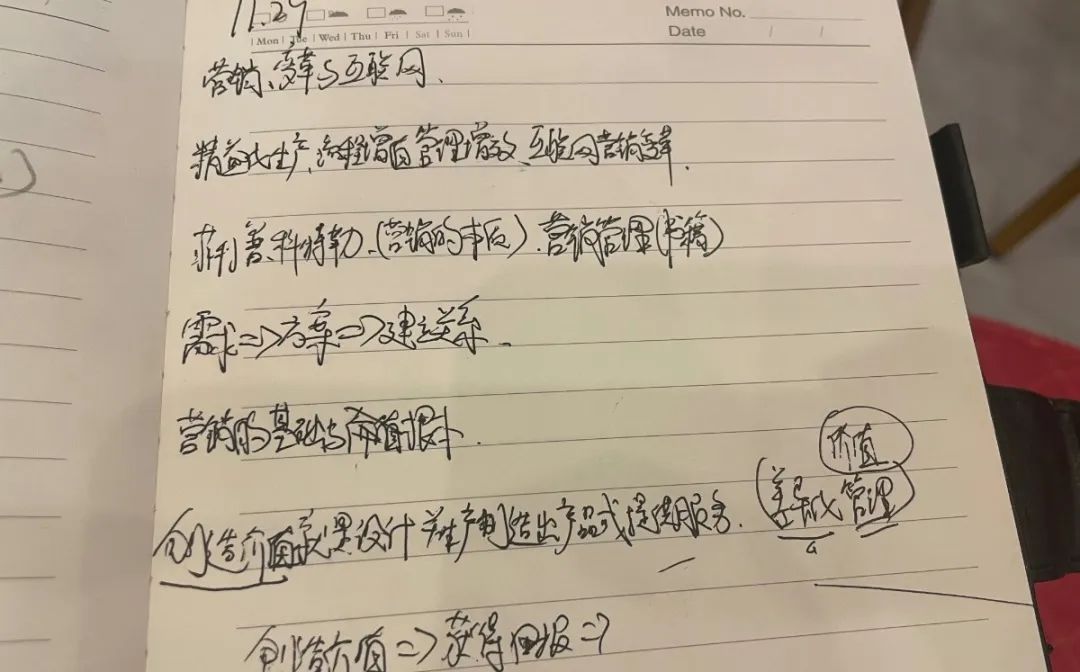 11.29
Memo No.
Mon Tue Wed Thu Fri Sat Sun
Date / /
营销、变革与互联网、
精益化生产,流程增值管理增效、互联网营销变革.
菲利普·科特勒、(营销的本质)、营销管理(书籍)
需求=>方案=>建立关系.
营销的基础与价值根本.
价值
创造价值就是设计并生产制造出产品或提供服务. (差异化管理)
创造价值=>获得回报=>